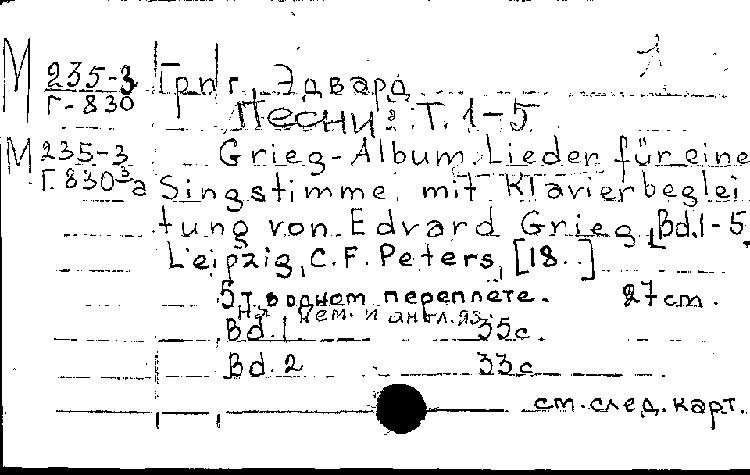 М 235-3 Григ, Эдвард
Г-830
Песни: Т. 1-5
М 235-3 Grieg-Album. Lieder für eine
Г. 830³а Singstimme mit Klavierbeglei
tung von Edvard Grieg, Bd. 1-5.
Leipzig, C. F. Peters, [18..]
5 т. в одном переплёте. 27 cm.
на нем. и англ. яз.
Bd. 1 35 с.
Bd. 2 33 с
см. след. карт.